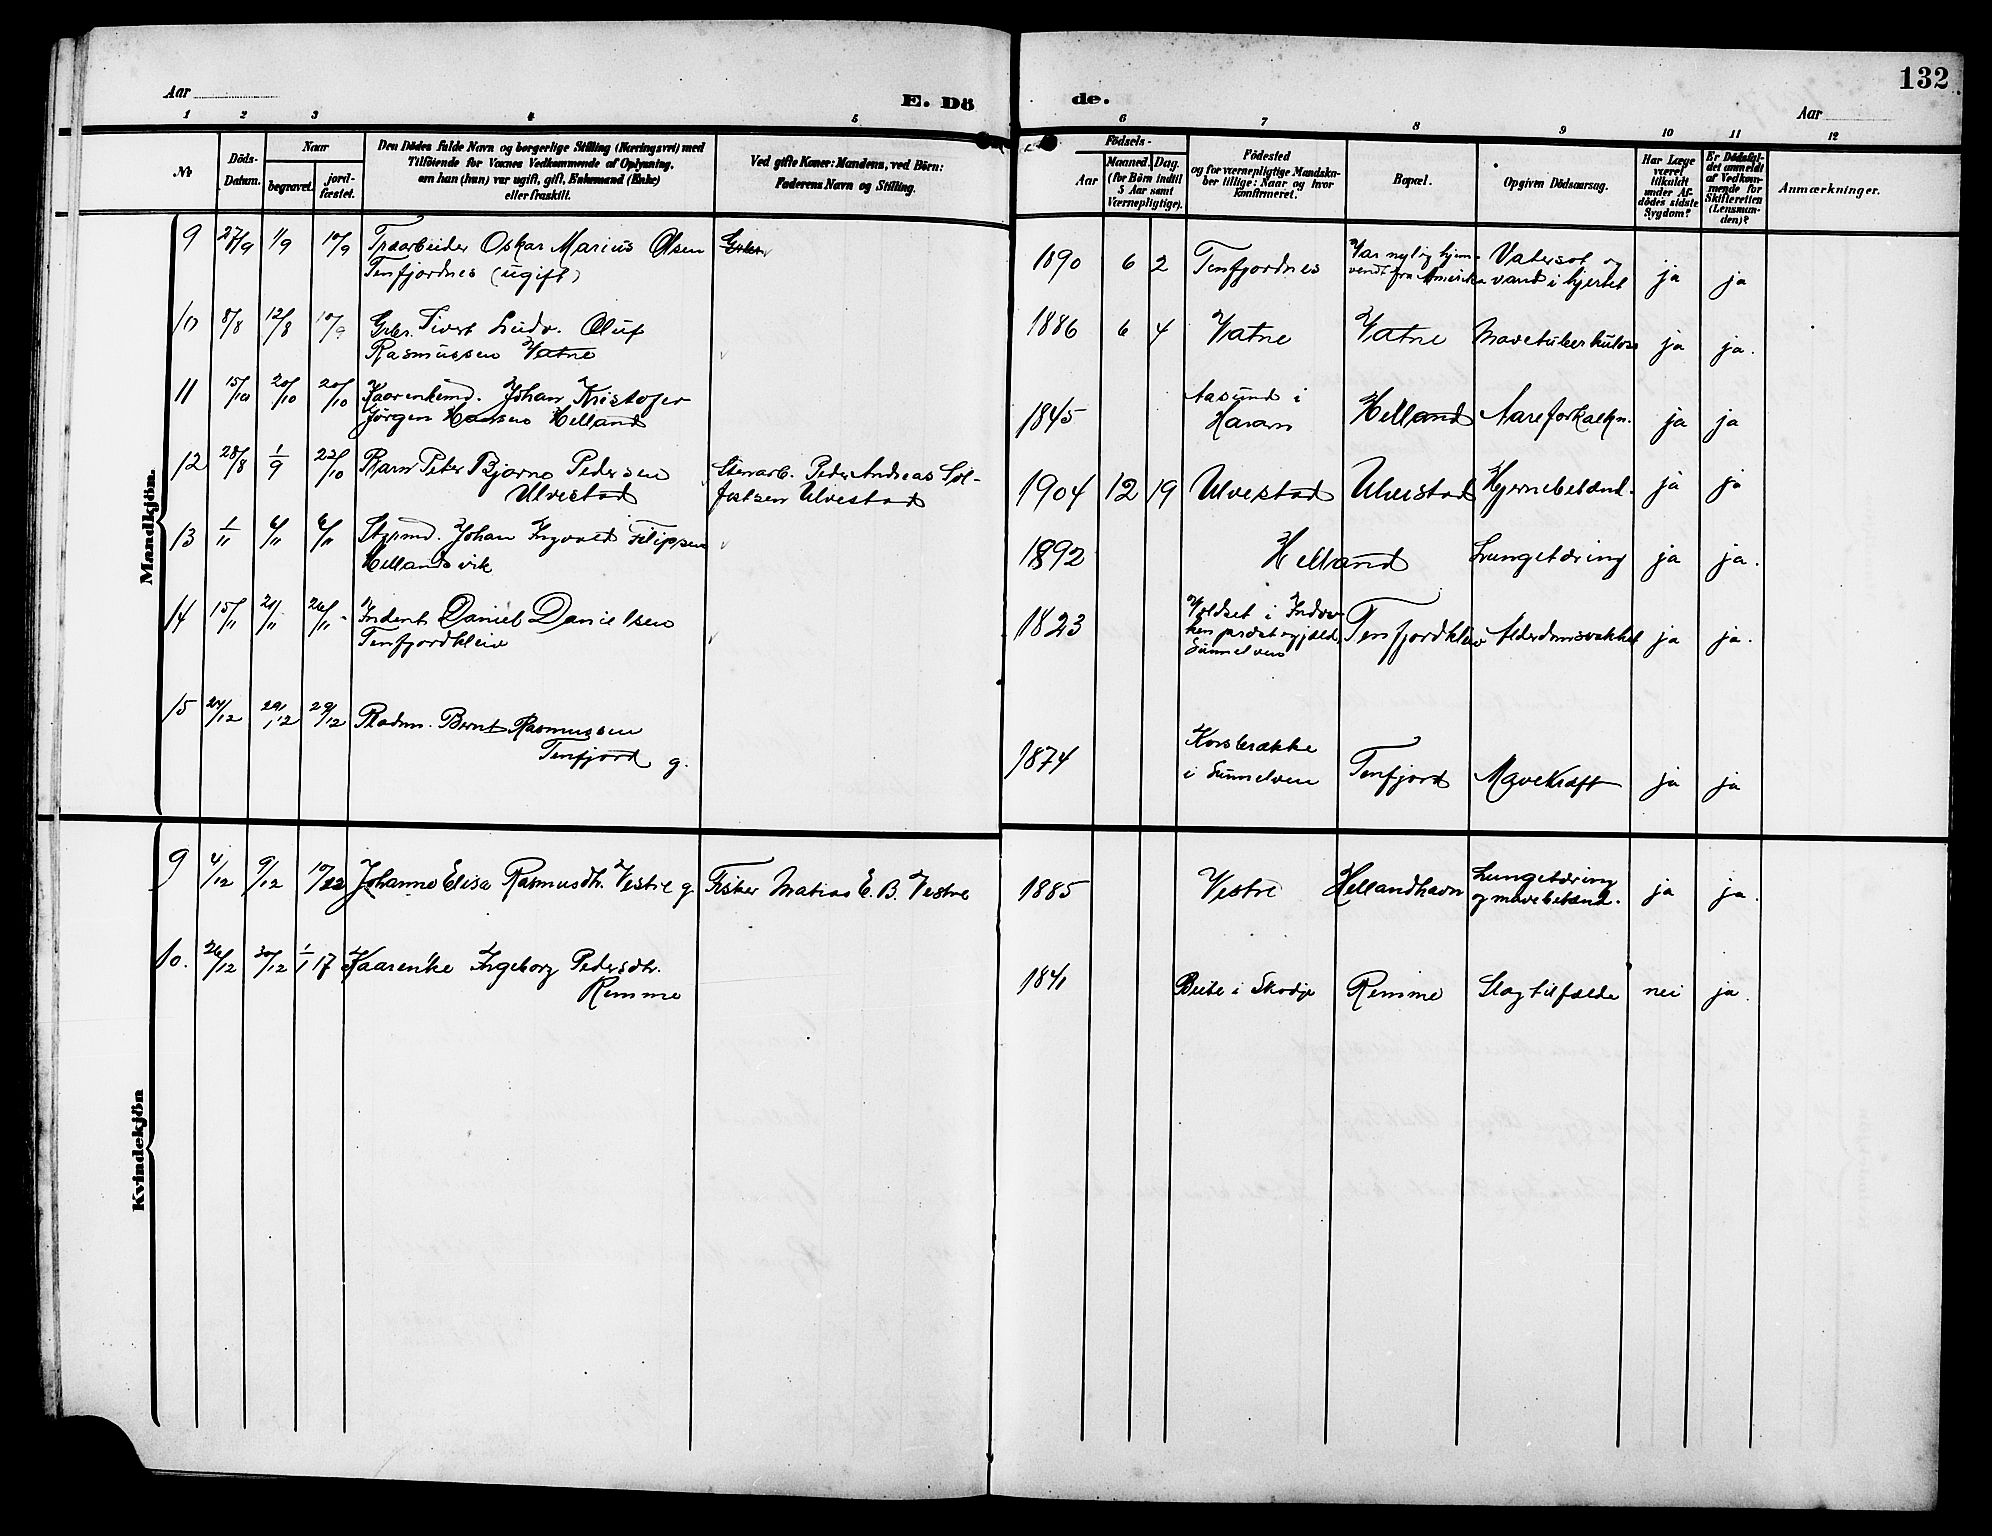 132
Aar
E. Dö
de.
Aar
1 2 3 4 5 6 7 8 9 10 11 12
No
Döds-
Datum.
Naar
begravet.
jord-
fæstet.
Den Dödes fulde Navn og borgerlige Stilling (Næringsvei) med
Tilföiende for Voxnes Vedkommende af Oplysning,
om han (hun) var ugift, gift, Enkemand (Enke)
eller fraskilt.
Ved gifte Koner: Mandens, ved Börn:
Faderens Navn og Stilling.
Födsels-
Aar
Maaned. Dag.
(for Börn indtil
5 Aar samt
Værnepligtige).
Födested
og for værnepligtige Mandska-
ber tillige: Naar og hvor
konfirmeret.
Bopæl.
Opgiven Dödsaarsag.
Har Læge
været
tilkaldt
under Af-
dödes sidste
Sygdom?
Er Dödsfal-
det anmeldt
af Vedkom-
mende for
Skifteretten
(Lensman-
den)?
Anmærkninger.
Mandkjön.
9 27/9 1/9 10/9 Træarbeider Oskar Marius Olsen
Tenfjordnes (ugift)
Gbr.
1890 6 2 Tenfjordnes
Var nylig hjem-
vendt fra Amerika
Vatersot og
vand i hjertet
ja ja
10 8/8 12/8 10/9 Gbr. Sivert Ludv. Oluf
Rasmussen Vatne
1886 6 4 Vatne Vatne Mavetuberkulose ja ja.
11 15/10 20/10 20/10 Kaarenkemd. Johan Kristofer
Jørgen Hansen Helland
1845 Aasund i
Haram
Helland Aareforkalkn. ja ja
12 28/8 1/9 22/10 Barn Peter Bjarne Pedersen
Ulvestad
Stenarb. Peder Andreas Sol-
festsen Ulvestad
1904 12 19 Ulvestad Ulvestad Hjernebetænd. ja ja
13 1/11 6/11 6/11 Styrmd. Johan Ingvald Filipsen
Hellandsvik
1892 Helland Lungetæring ja ja.
14 15/11 21/11 26/11 Inderst Daniel Danielsen
Tenfjordkleiv
1823 Voldset i
Sunnelven
Tenfjordkleiv Alderdomssvakhet ja ja.
15 24/12 29/12 29/12 Pladsm. Bernt Rasmussen
Tenfjord g.
1874 Korsbrække
i Sunnelven
Tenfjord Mavekræft ja ja
Kvindekjön
9 4/12 9/12 10/12 Johanne Elisa Rasmusdtr. Vestre g Fisker Matias E. B. Vestre
1885 Vestre Hellandhavn Lungetæring
og mavebetænd.
ja ja.
10. 26/12 30/12 1/1 17 Kaarenke Ingeborg Pedersdtr.
Remme
1841 Beite i Skodje Remme Slagtilfælde nei ja.